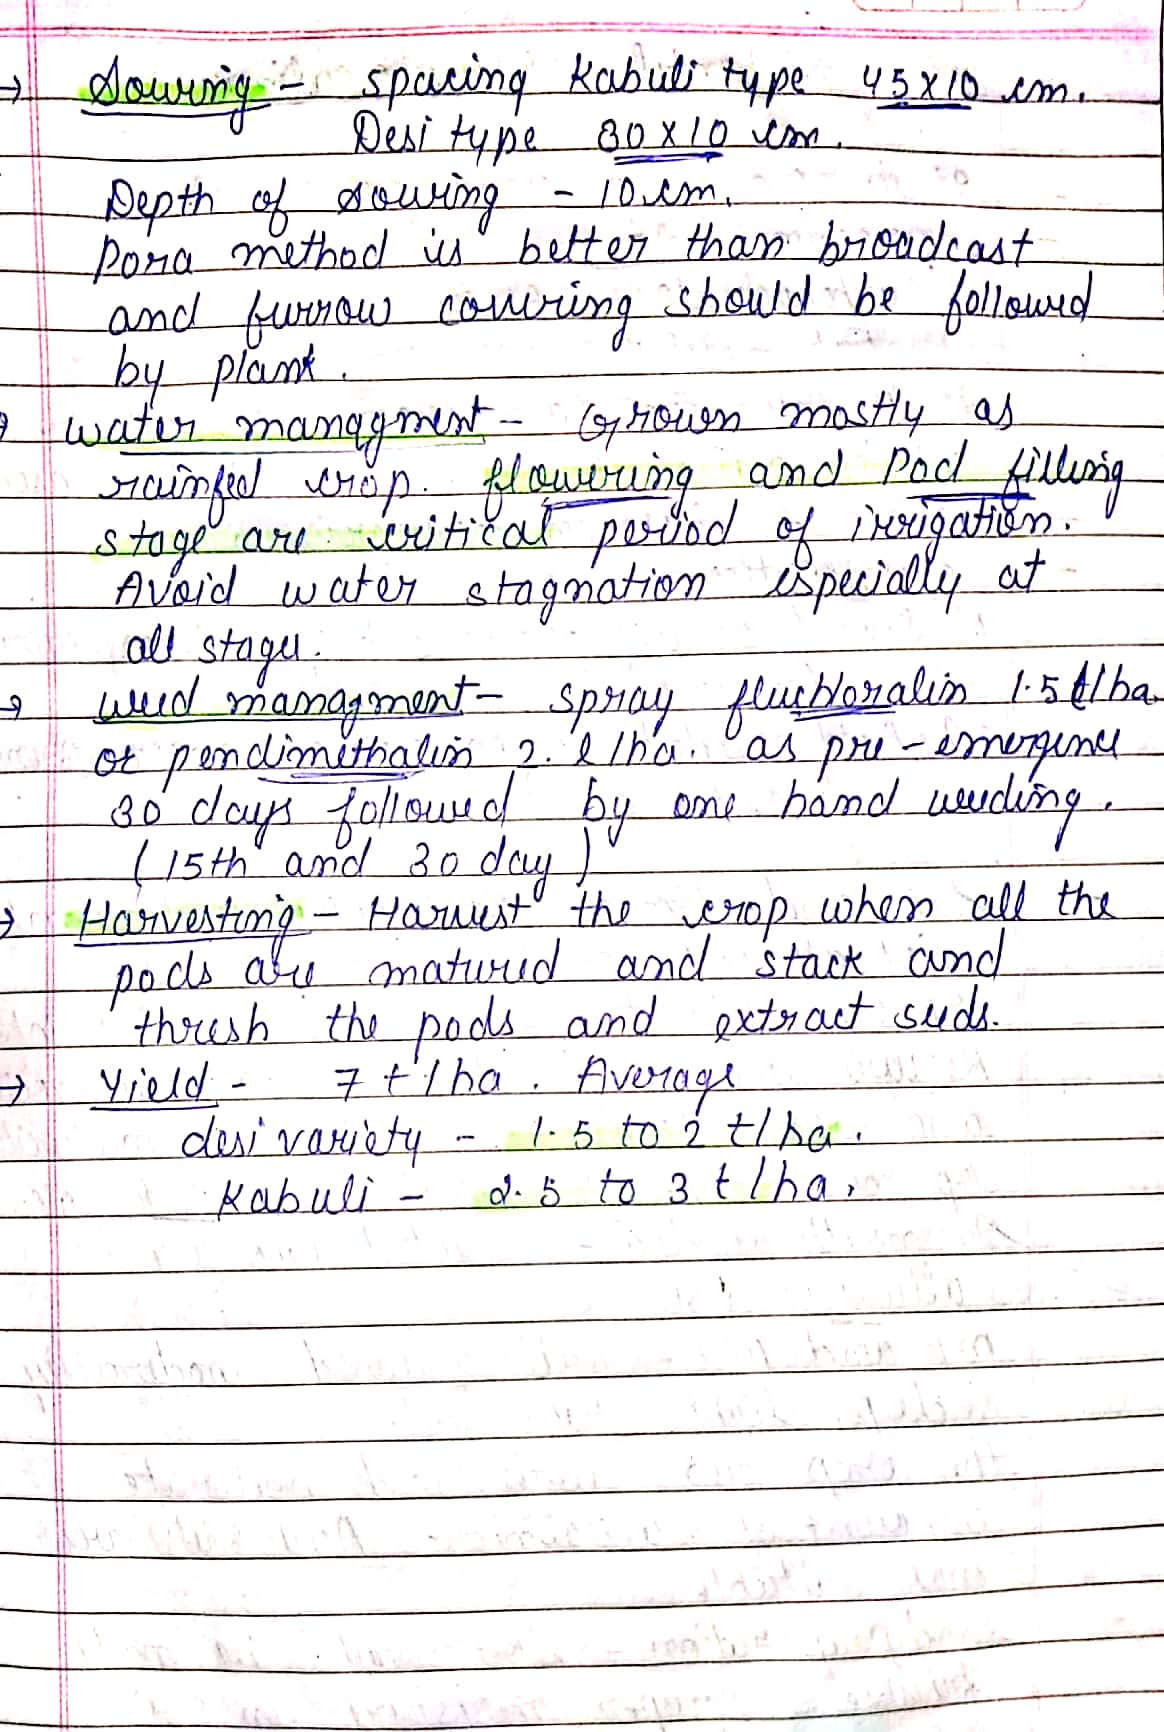 → Sowing - spacing Kabuli type 45x10 cm.
Desi type 30x10 cm.
Depth of sowing - 10 cm.
Pora method is better than broadcast
and furrow covering should be followed
by plank.
→ Water managment - Grown mostly as
rainfed crop. flowering and Pod filling
stage are critical period of irrigation.
Avoid water stagnation especially at
all stage.
→ Weed managment - spray fluchloralin 1.5 l/ha
or pendimethalin 2. l/ha. as pre-emergence
30 days followed by one hand weeding.
(15th and 30 day)
→ Harvesting - Harvest the crop when all the
pods are matured and stack and
thresh the pods and extract seeds.
→ Yield - 7 t/ha. Average
desi variety - 1.5 to 2 t/ha.
Kabuli - 2.5 to 3 t/ha,